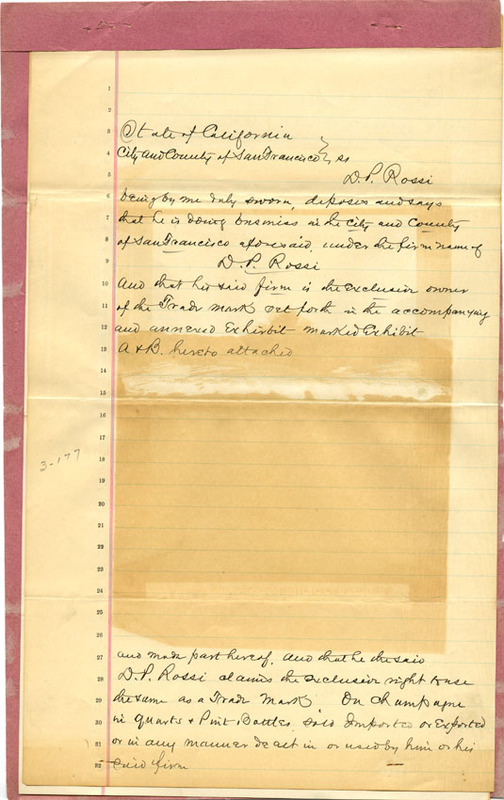 State of California
City and County of San Francisco } ss
D. P. Rossi
being by me duly sworn, deposes and says
that he is doing business in the City and County
of San Francisco aforesaid, under the firm name of
D. P. Rossi
And that his said firm is the exclusive owner
of the Trade mark set forth in the accompanying
and annexed Exhibit marked Exhibit
A & B. hereto attached
3-177
and made part hereof. and that he the said
D. P. Rossi claims the exclusive right to use
the same as a Trade Mark. On Champagne
in Quarts & Pint Bottles, sold Imported or Exported
or in any manner dealt in or used by him or his
said firm
1
2
3
4
5
6
7
8
9
10
11
12
13
14
15
16
17
18
19
20
21
22
23
24
25
26
27
28
29
30
31
32